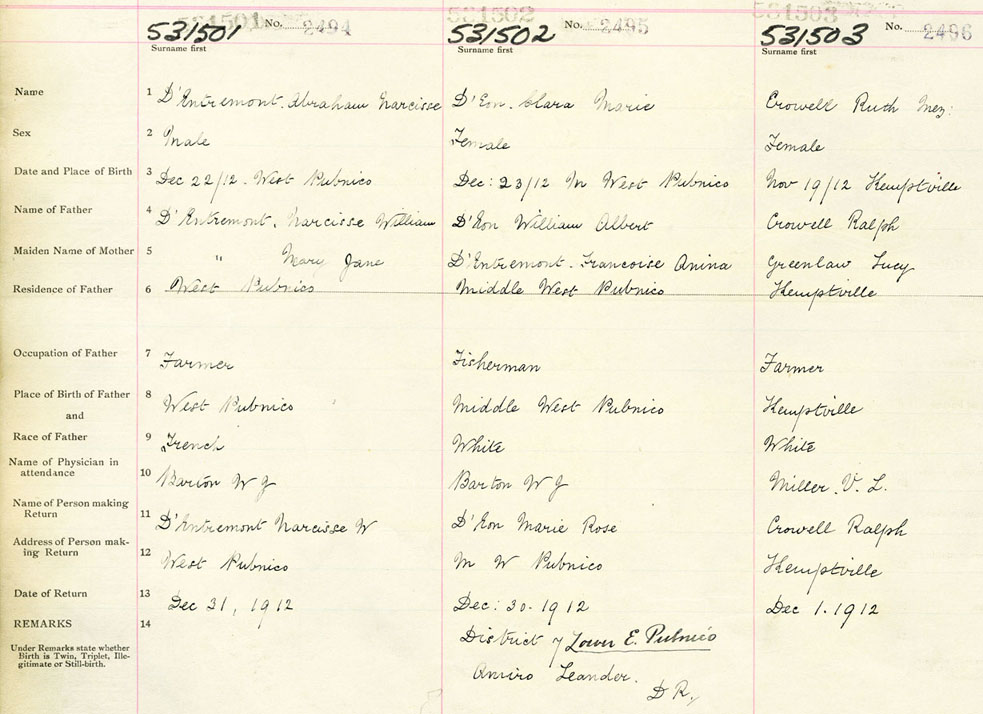 531501 No. 2494 531502 No. 2495 531503 No. 2496
531501 531502 531503
Surname first Surname first Surname first
Name 1 D'Entremont. Abraham Narcisse D'Eon. Clara Marie Crowell Ruth Inez.
Sex 2 Male Female Female
Date and Place of Birth 3 Dec 22/12. West Pubnico Dec: 23/12 M West Pubnico Nov 19/12 Kemptville
Name of Father 4 D'Entremont. Narcisse William D'Eon William Albert Crowell Ralph
Maiden Name of Mother 5 " Mary Jane D'Entremont. Francoise Anina Greenlaw Lucy
Residence of Father 6 West Pubnico Middle West Pubnico Kemptville
Occupation of Father 7 Farmer Fisherman Farmer
Place of Birth of Father 8 West Pubnico Middle West Pubnico Kemptville
and
Race of Father 9 French White White
Name of Physician in
attendance 10 Barton W J Barton W J Miller. V. L.
Name of Person making
Return 11 D'Entremont Narcisse W D'Eon Marie Rose Crowell Ralph
Address of Person mak-
ing Return 12 West Pubnico M W Pubnico Kemptville
Date of Return 13 Dec 31, 1912 Dec: 30. 1912 Dec 1. 1912
REMARKS 14 District of Lower E. Pubnico
Under Remarks state whether
Birth is Twin, Triplet, Ille-
gitimate or Still-birth.
Amiro Leander.
D R,